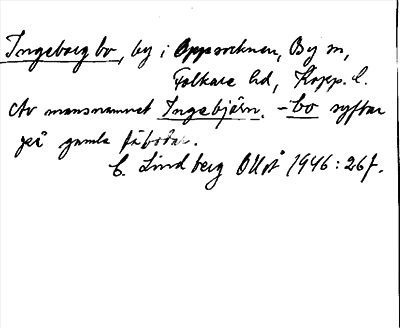 Ingeborgbo, by i Oppsocknen, By sn,
Folkare hd, Kopp. l.
Av mansnamnet Ingebjörn. -bo syftar
på gamla fäbodar.
C. Lindberg OUÅ 1946: 26f.